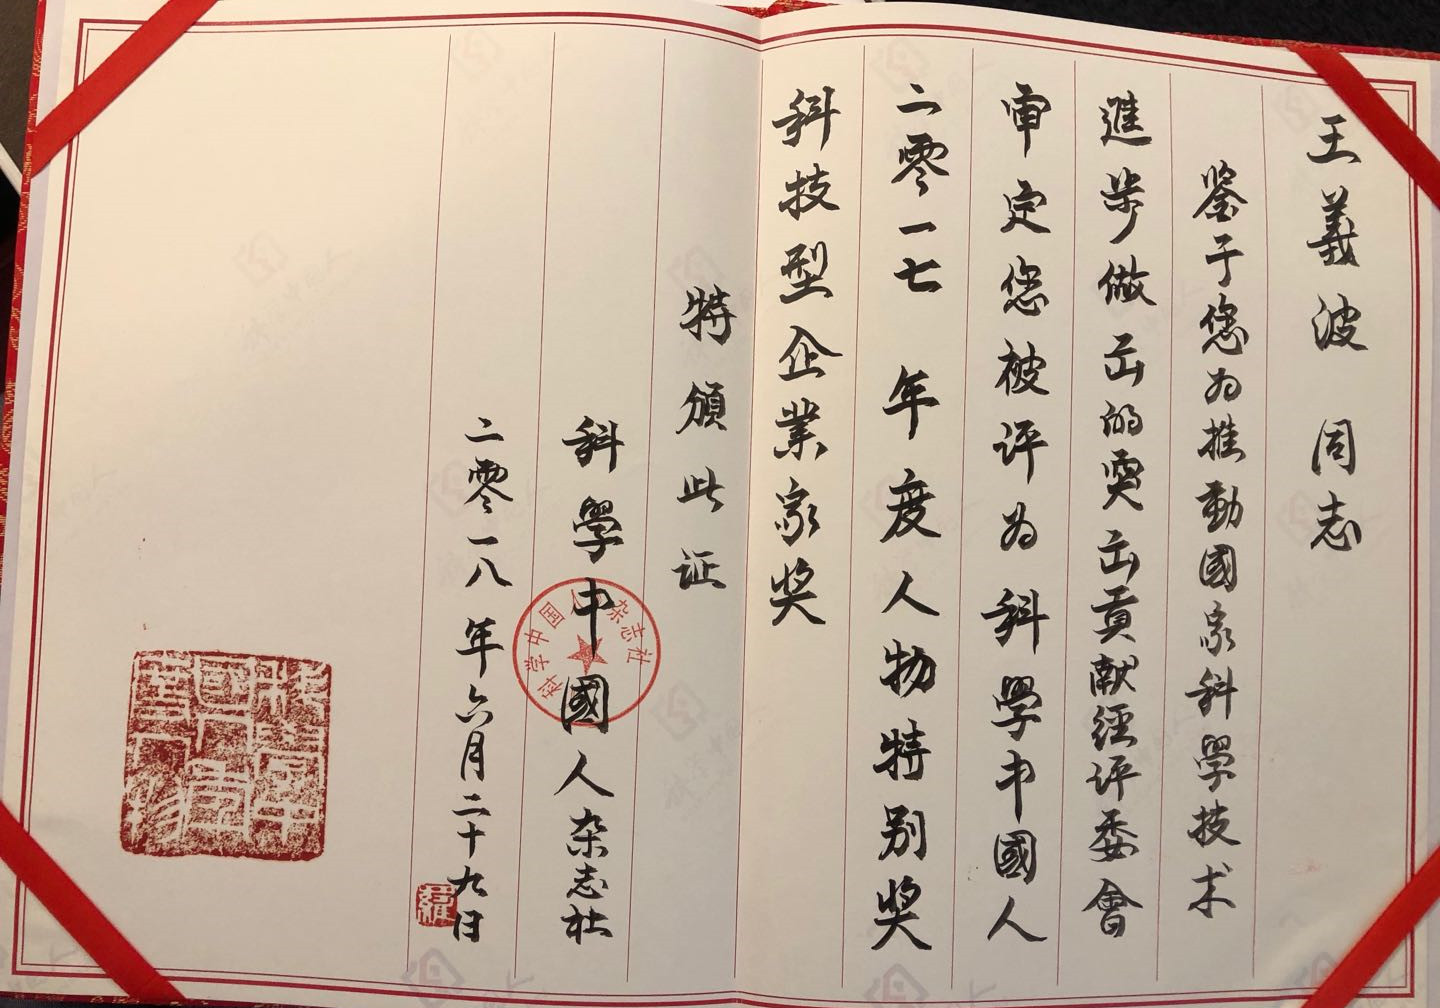 王義波 同志
鉴于您為推動國家科學技术
進步做出的突出貢献經评委會
审定您被评為科學中國人
二零一七 年度人物特别奖
科技型企業家奖
特頒此证
科學中國人杂志社
二零一八年六月二十九日
科学中国人杂志社
羅